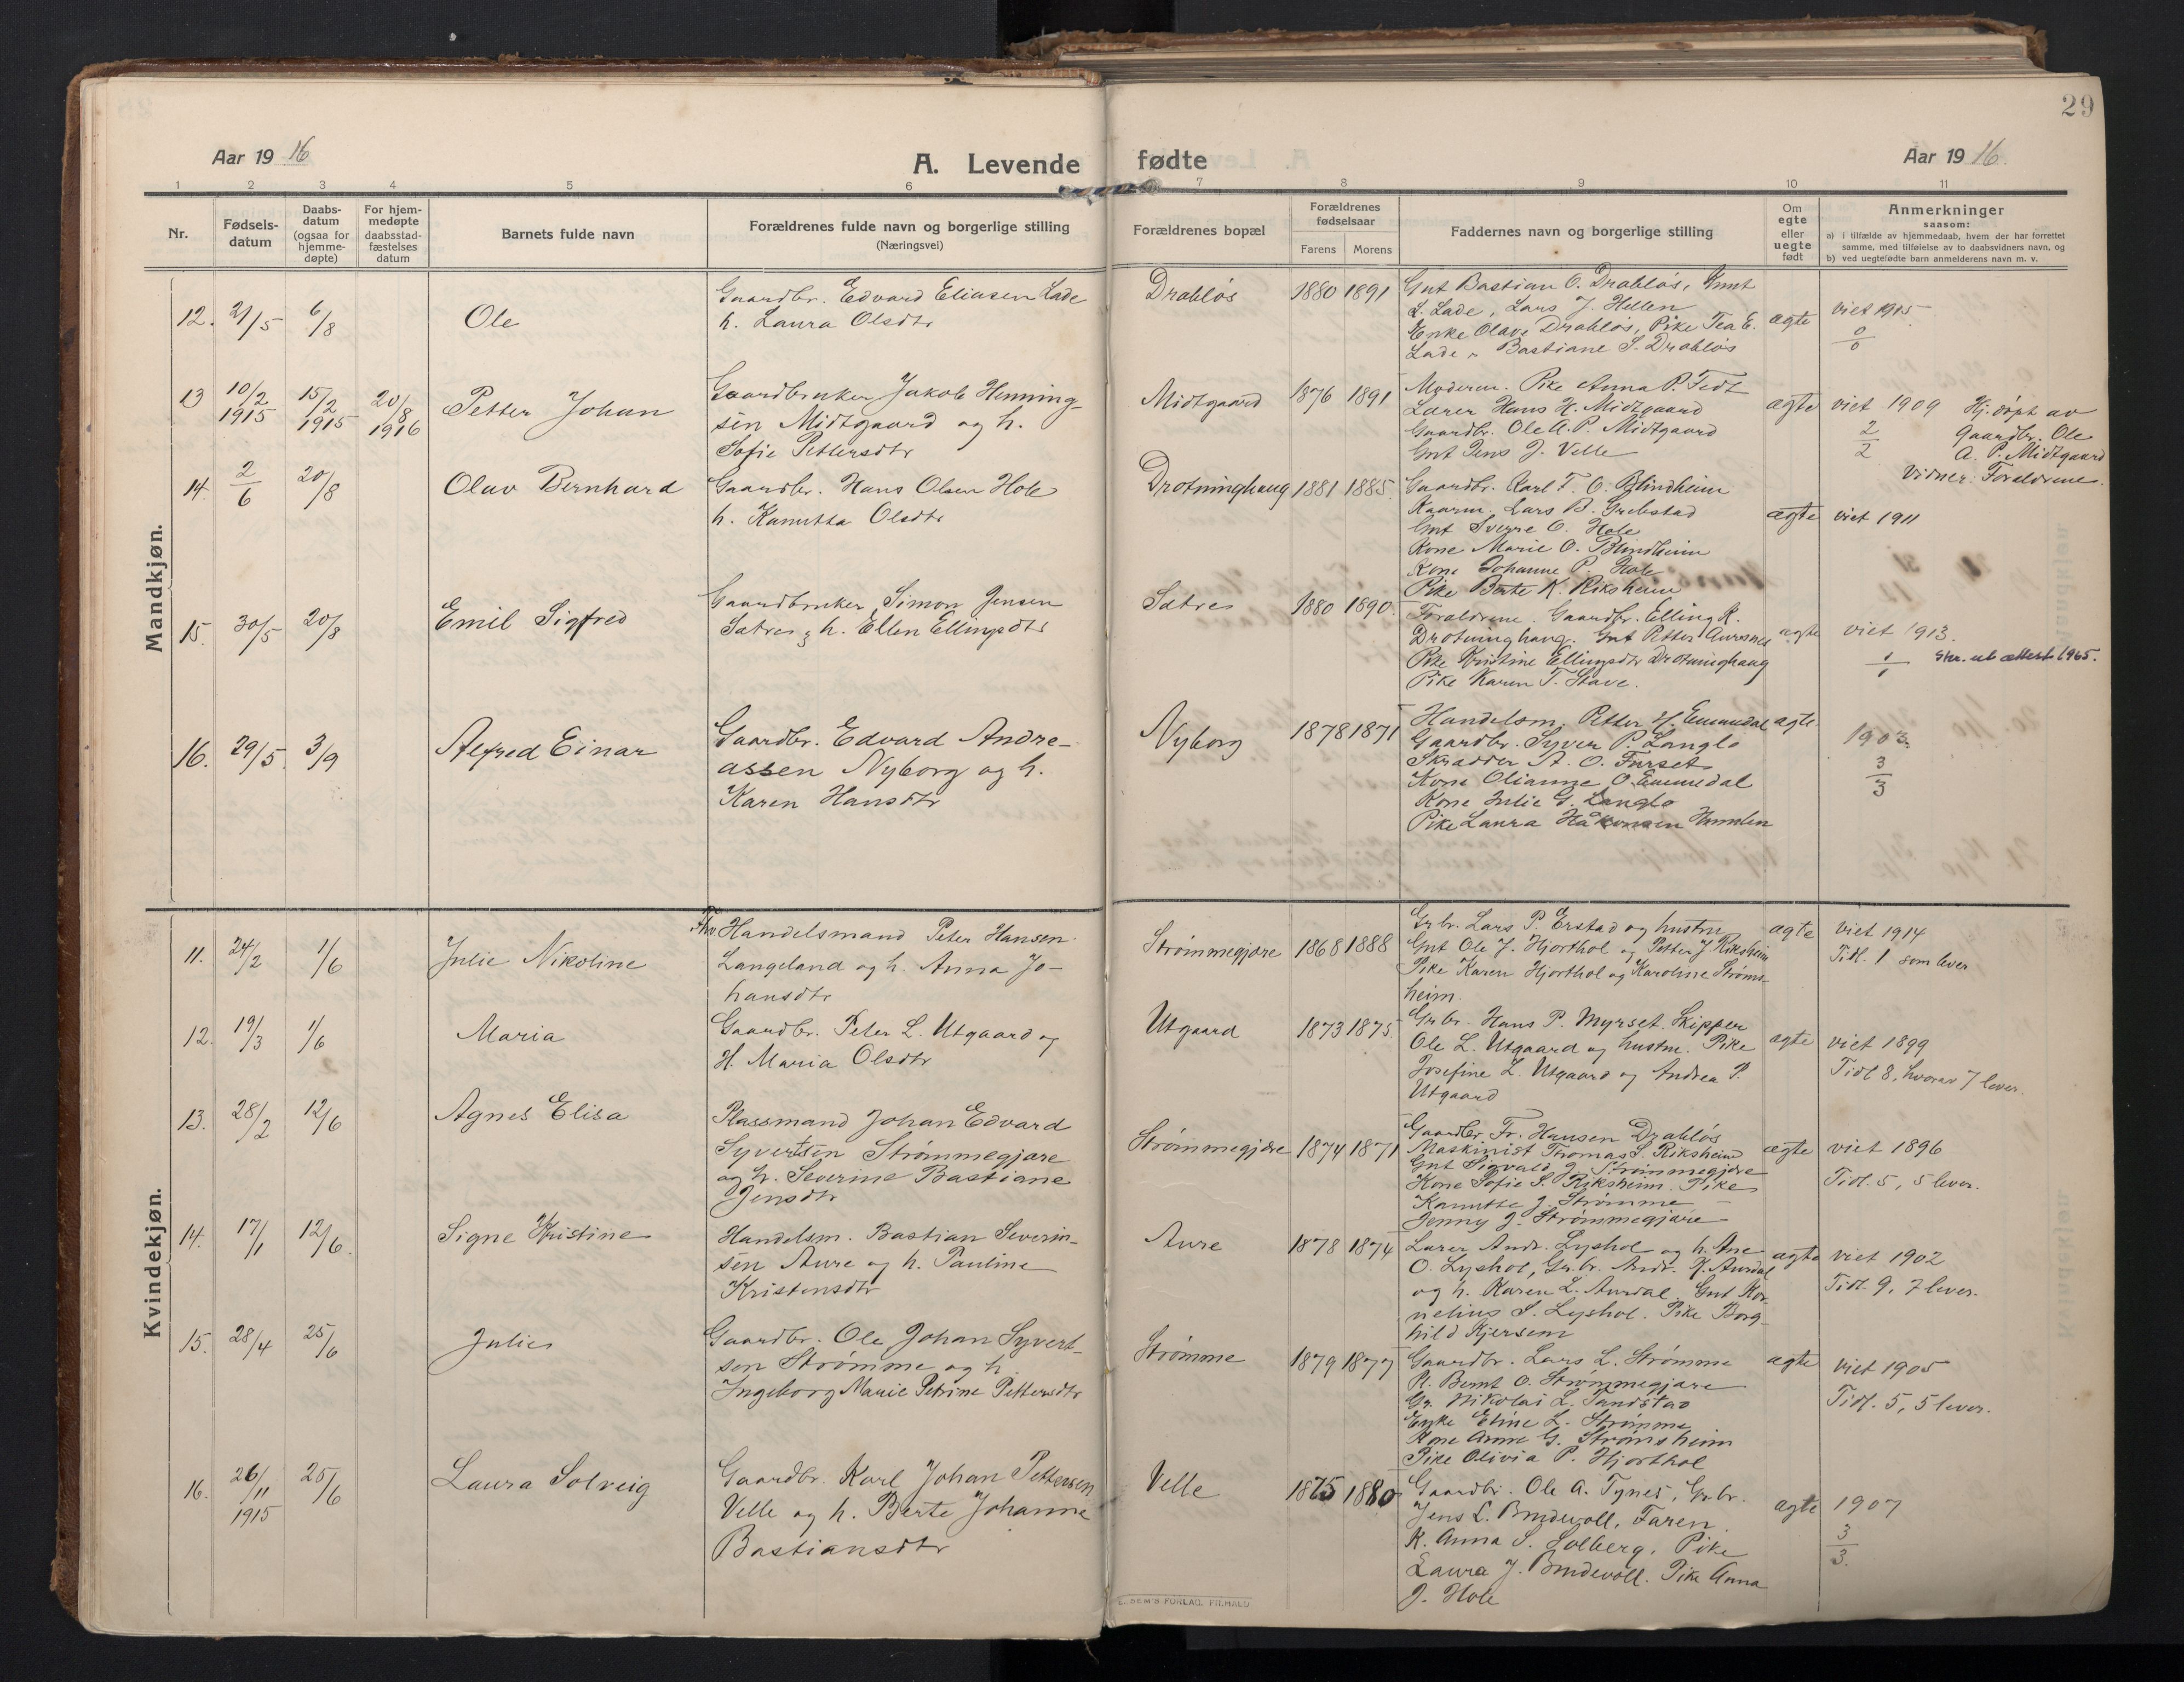 29
Aar 19 16
A. Levende fødte
Aar 19 16.
1 2 3 4 5 6 7 8 9 10 11
Nr.
Fødsels-
datum
Daabs-
datum
(ogsaa for
hjemme-
døpte)
For hjem-
medøpte
daabsstad-
fæstelses
datum
Barnets fulde navn
Forældrenes fulde navn og borgerlige stilling
(Næringsvei)
Forældrenes bopæl
Forældrenes
fødselsaar
Farens Morens
Faddernes navn og borgerlige stilling
Om
egte
eller
uegte
født
Anmerkninger
saasom:
a) i tilfælde av hjemmedaab, hvem der har forrettet
samme, med tilføielse av to daabsvidners navn, og
b) ved uegtefødte barn anmelderens navn m. v.
Mandkjøn.
12. 21/5 6/8
Ole
Gaardbr. Edvard Eliasen Lade
h. Laura Olsdtr
Drabløs
1880 1891
Gut Bastian O. Drabløs, Gmt
L. Lade, Lars J. Hellen
Enke Olave Drabløs, Pike Tea E.
Lade, Bastiane S. Drabløs
ægte
viet 1915
0/0
13 10/2 1915 15/2 1915 20/8 1916
Petter Johan
Gaardbruker Jakob Henning-
sen Midtgaard og h.
Sofie Pettersdtr
Midtgaard
1876 1891
Moderen. Pike Anna P. Tedt
Lærer Hans H. Midtgaard
Gaardbr. Ole A. P. Midtgaard
Gut Jens J. Velle
ægte
viet 1909 Hj. døpt av
2/2 gaardbr. Ole
A. P. Midtgaard
Vidner: Forældrene.
14. 2/6 20/8
Olav Bernhard
Gaardbr. Hans Olsen Hole
h. Kanutta Olsdtr
Drotninghaug
1881 1885.
Gaardbr. Karl T. O. Blindheim
Kaarm. Lars B. Grebstad
Gmt Sverre O. Hole
Kone Marie O. Blindheim
Kone Johanne P. Hole
Pike Berte K. Riksheim
ægte
viet 1911
15. 30/5 20/8
Emil Sigfred
Gaardbruker Simon Jensen
Sætre, h. Ellen Ellingsdtr
Sætre
1880 1890.
Forældrene. Gaardbr. Elling K.
Drotninghaug. Gut Petter Aursnes
Pike Kristine Ellingsdtr Drotninghaug
Pike Karen T. Stave.
ægte
viet 1913.
1/1 Skr. ut attest 1965.
16. 29/5. 3/9
Alfred Einar
Gaardbr. Edvard Andre-
assen Nyborg og h.
Karen Hansdtr
Nyborg
1878 1871
Handelsm. Petter H. Emmedal
Gaardbr. Syver P. Langlo
Skrædder A. O. Furset
Kone Olianne O. Emmedal
Kone Julie G. Langlo
Pike Laura Håkonsen Humlen
ægte.
1903.
3/3
Kvindekjøn.
11. 24/2 1/6
Julie Nikoline
Handelsmand Peter Hansen
Langeland og h. Anna Jo-
hansdtr
Strømmegjære
1868 1888
Grbr. Lars P. Erstad og hustru
Gut Ole J. Hjorthol og Petter J Riksheim
Pike Karen Hjorthol og Karoline Strøms-
heim.
ægte
viet 1914
Tidl. 1 som lever
12. 19/3 1/6
Maria
Gaardbr. Peter L. Utgaard og
H. Maria Olsdtr
Utgaard
1873 1875.
Grbr. Hans P. Myrset. Skipper
Ole L. Utgaard og hustru. Pike
Josefine L. Utgaard og Andrea P.
Utgaard
ægte
viet 1899
Tidl 8, hvorav 7 lever.
13. 28/2 12/6
Agnes Elisa
Plassmand Johan Edvard
Syvertsen Strømmegjære
og h. Severine Bastiane
Jensdtr
Strømmegjære
1874 1871
Gaardbr. Fr. Hansen Drabløs
Maskinist Thomas S. Riksheim
Gut Sigvald J. Strømmegjære
Kone Sofie S. Riksheim. Pike
Kanutte J. Strømme
Jenny J. Strømmegjære
ægte
viet 1896
Tidl. 5, 5 lever.
14. 17/1 12/6.
Signe Kristine
Handelsm. Bastian Severin-
sen Aure og h. Pauline
Kristensdtr
Aure
1878 1874
Lærer Andr. Lyshol og h. Ane
O. Lyshol, Grbr. Andr. K. Aurdal
og h. Karen L. Aurdal. Gut Kor-
nelius S. Lyshol. Pike Borg-
hild Kjersem
ægte
viet 1902
Tidl. 9, 7 lever.
15. 28/4 25/6
Julie
Gaardbr. Ole Johan Syvert-
sen Strømme og h.
Ingeborg Marie Petrine Pettersdtr
Strømme
1879 1877
Gaardbr. Lars L. Strømme
Pl. Bernt O. Strømmegjære
Gr. Nikolai L. Tandstad
Enke Eline L. Strømme
Kone Anne G. Strømsheim
Pike Olivia P. Hjorthol
ægte
viet 1905
Tidl. 5, 5 lever.
16. 26/11 1915 25/6
Laura Solveig
Gaardbr. Karl Johan Pettersen
Velle og h. Berte Johanne
Bastiansdtr
Velle
1875 1880
Gaardbr. Ole A. Tynes, Grbr.
Jens L. Brudevoll, Faren.
K. Anna S. Solberg, Pike
Laura J. Brudevoll. Pike Anna
J. Hole
ægte
1907
3/3.
SEM'S FORLAG, FR.HALD